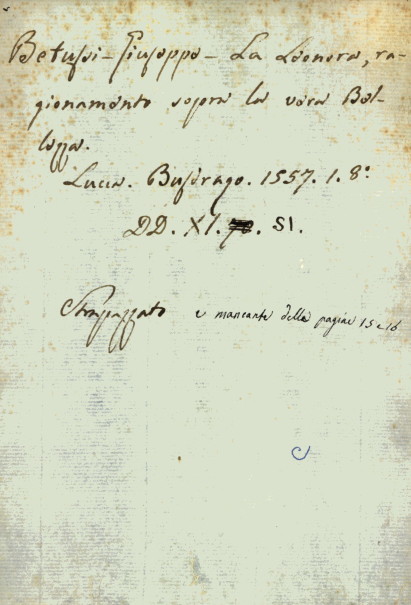 Betussi - Giuseppe - La Leonora, ra-
gionamento sopra la vera Bel-
lezza.
Lucca. Busdrago. 1557. 1. 8°.
DD. XI. . 51.
Strapazzato e mancante delle pagine 15 e 16